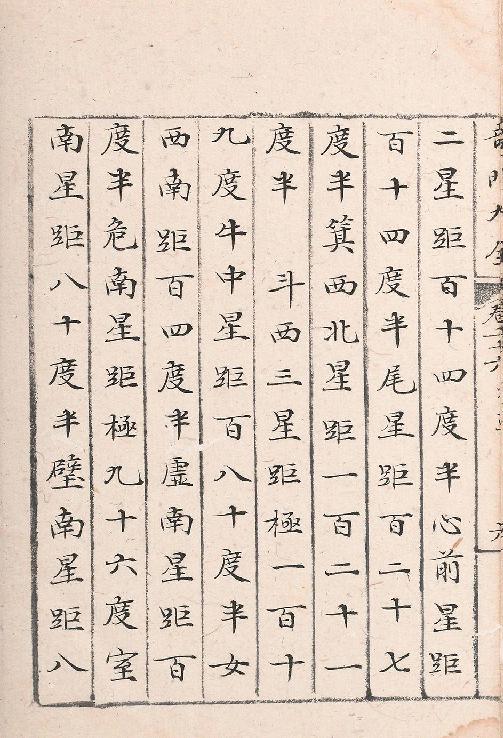 二星距百十四度半心前星距
百十四度半尾星距百二十七
度半箕西北星距一百二十一
度半　斗西三星距極一百十
九度牛中星距百八十度半女
西南距百四度半虛南星距百
度半危南星距極九十六度室
南星距八十度半壁南星距八